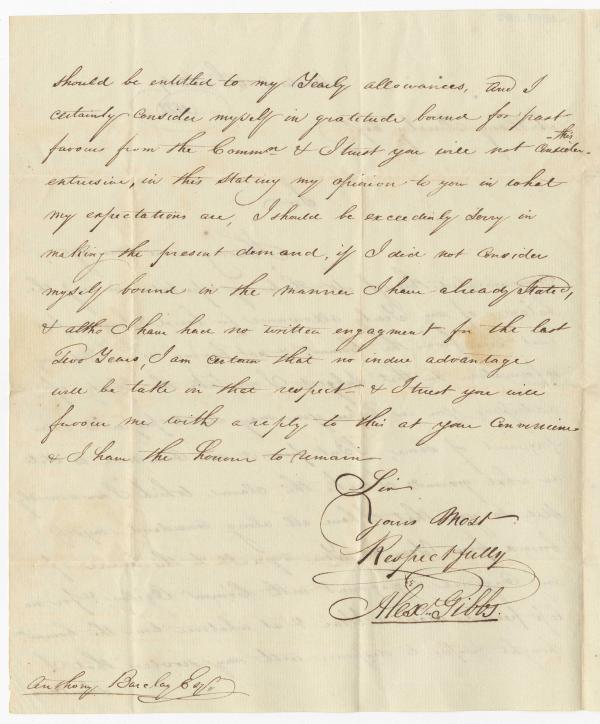 should be entitled to my Yearly allowances, and I
certainly consider myself in gratitude bound for past
favours from the Commrs & I trust you will not consider this
entrusive, in this stating my opinion to you in what
my expectations are, I should be exceedinly Sorry in
making the present demand, if I did not consider
myself bound in the manner I have already Stated,
& altho I have have no written engagment for the last
Two Years, I am certain that no indue advantage
will be take in that respect & I trust you will
favour me with a reply to this at your Convinience
& I have the honour to remain
Sir
Yours Most
Respectfully
Alexr. Gibbs
Anthony Barclay Esqr